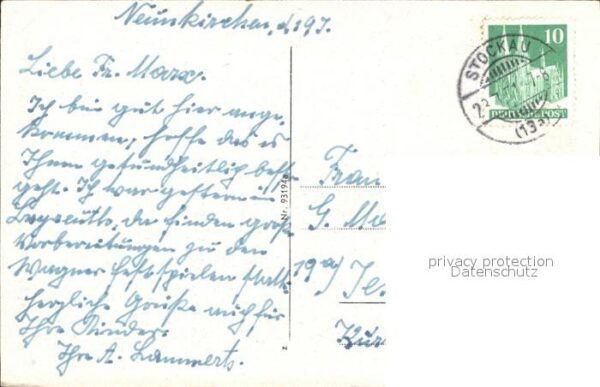 Neunkirchen, d. 19/7.
Liebe Fr. Marx.
Ich bin gut hier ange-
kommen, hoffe das es
Ihnen gesundheitlich
geht. Ich war gestern in
da finden große
Vorbereitungen zu den
Wagner Festspielen statt.
herzliche Grüße auch für
Ihre Kinder.
Ihre A. Lammert
Nr. 93194
z
Frau
G. Ma
19a)
STOCKAU
(13a)
10
DEUTSCHE POST
privacy protection
Datenschutz